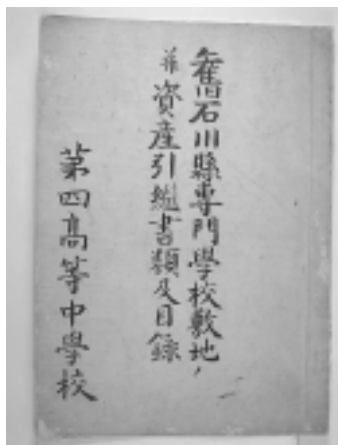 舊石川縣專門學校敷地、
並資產引繼書類及目錄
第四高等中學校